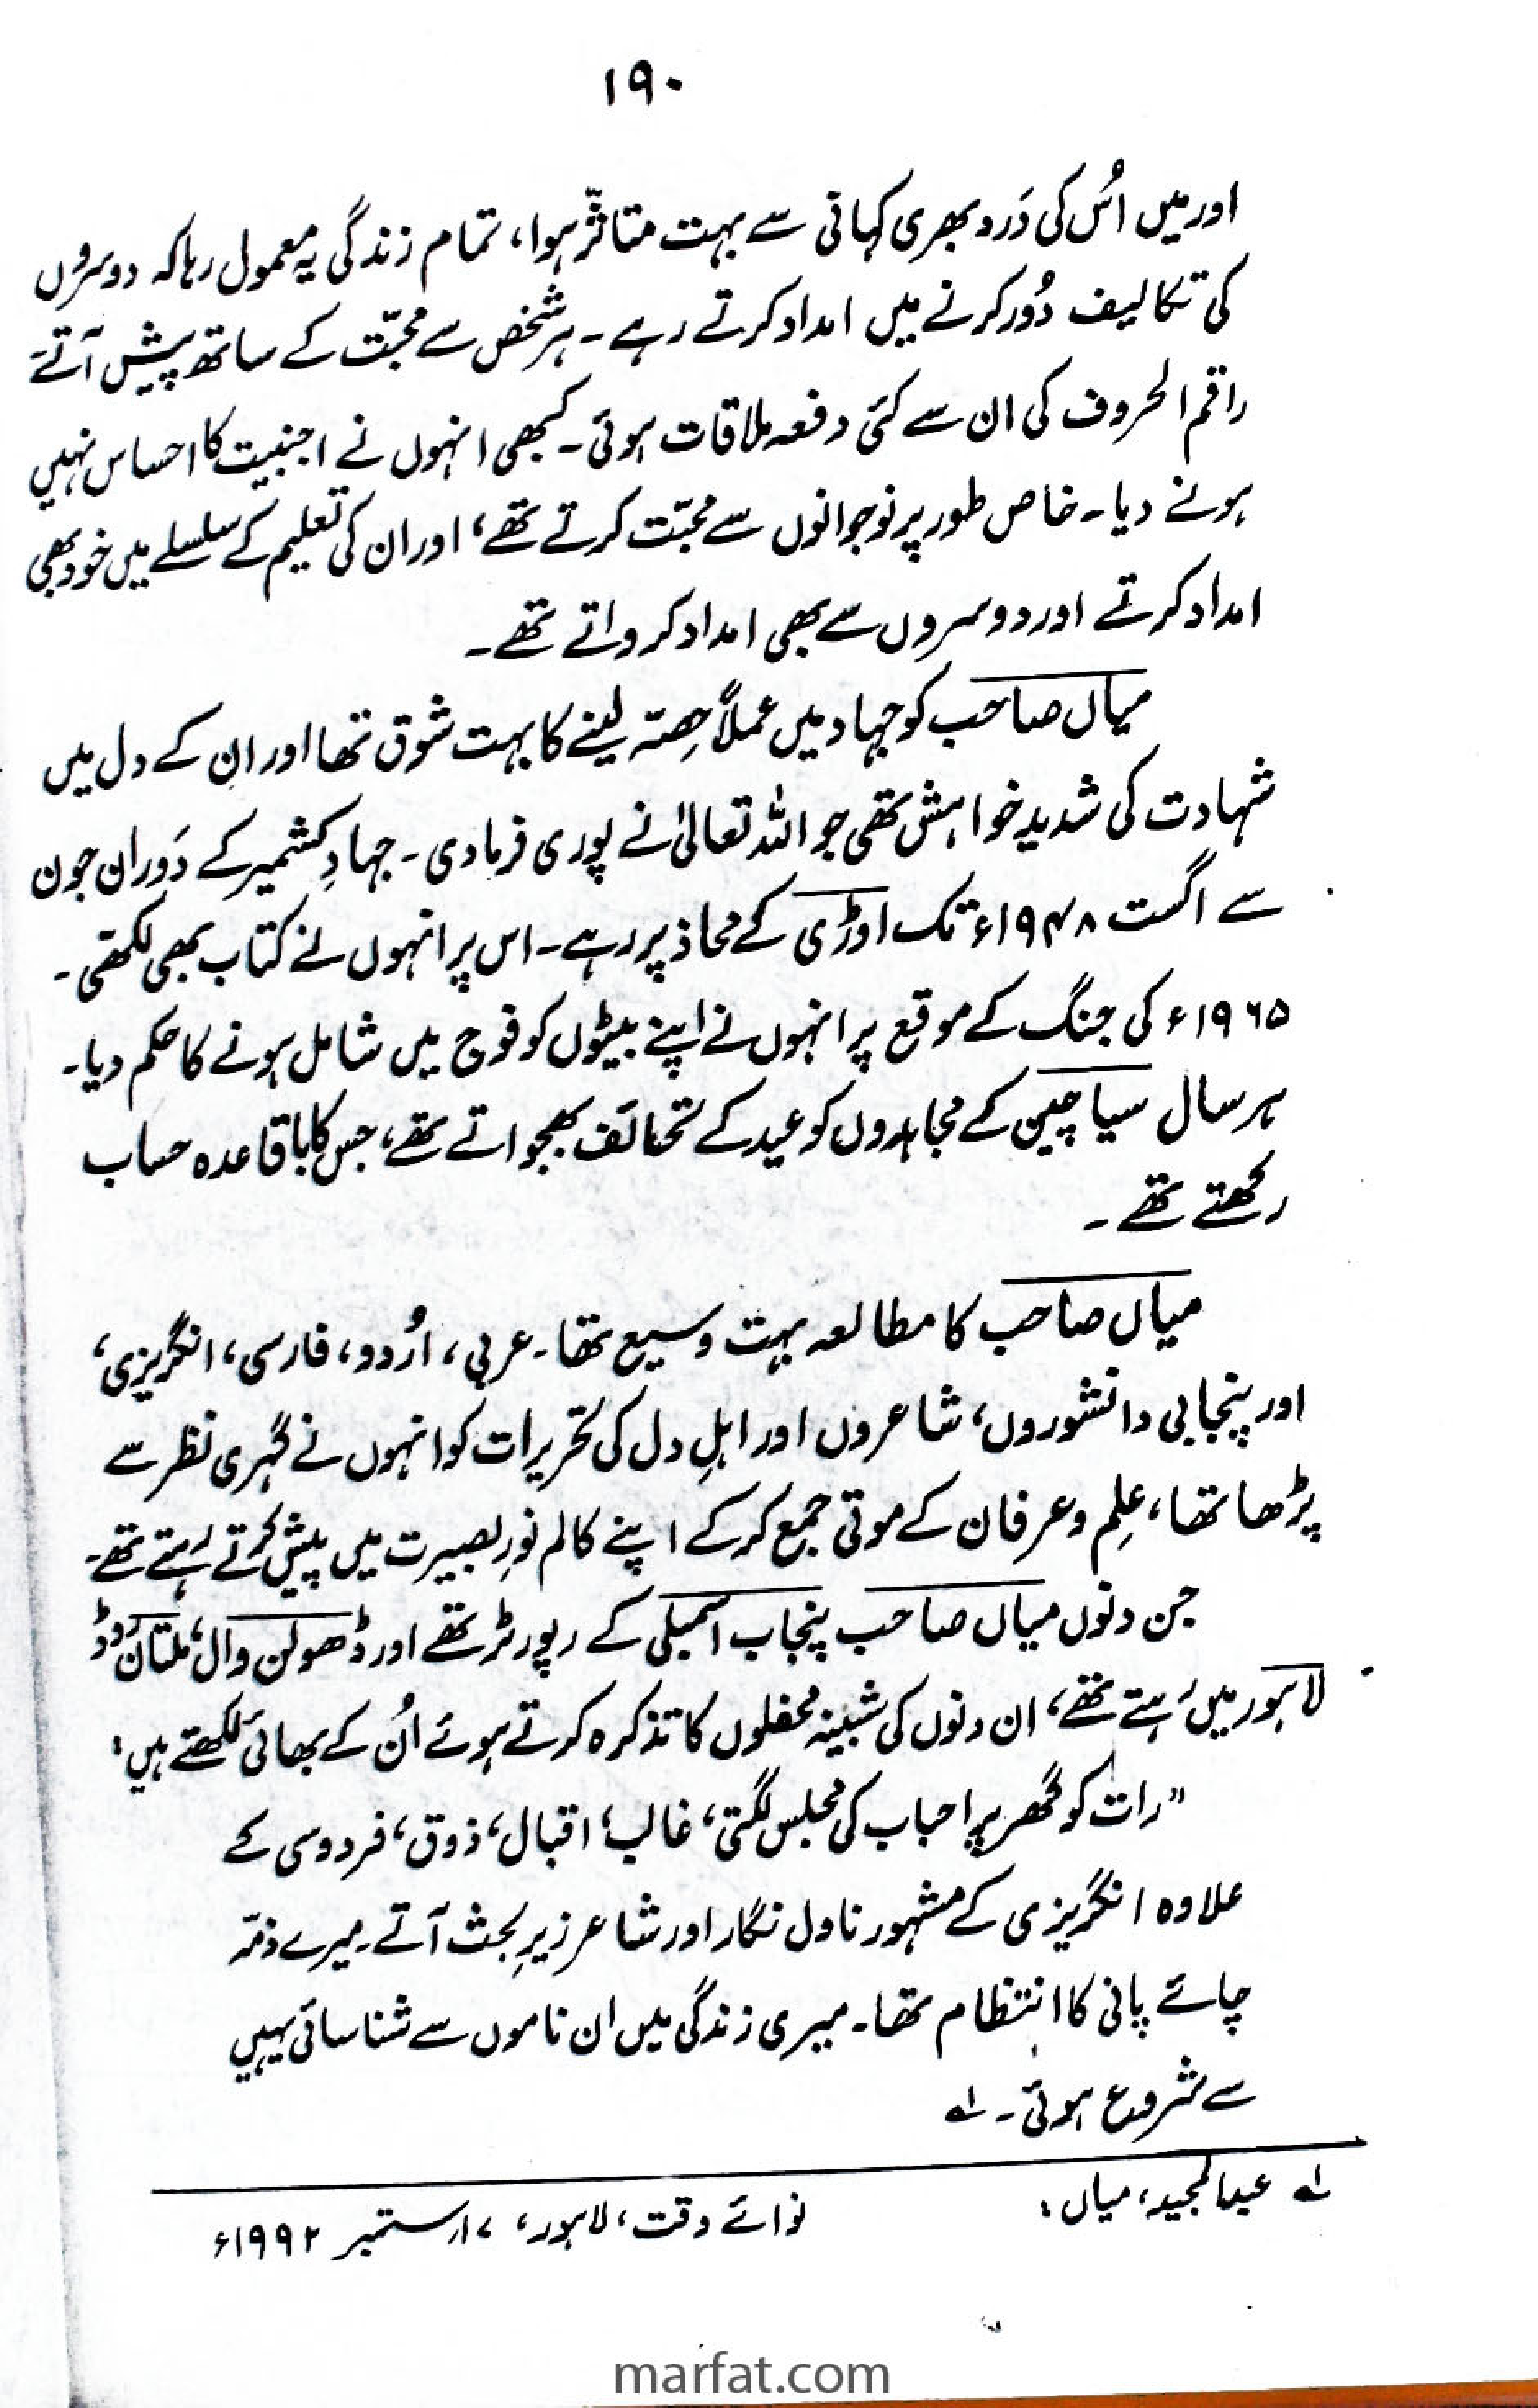 ۱۹۰
اور میں اُس کی دَرد بھری کہانی سے بہت متاثّر ہوا، تمام زندگی یہ معمول رہا کہ دوسروں
کی تکالیف دُور کرنے میں امداد کرتے رہے۔ ہر شخص سے محبّت کے ساتھ پیش آتے
راقم الحروف کی ان سے کئی دفعہ ملاقات ہوئی۔ کبھی انہوں نے اجنبیت کا احساس نہیں
ہونے دیا۔ خاص طور پر نوجوانوں سے محبّت کرتے تھے، اور ان کی تعلیم کے سلسلے میں خود بھی
امداد کرتے اور دوسروں سے بھی امداد کرواتے تھے۔
میاں صاحب کو جہاد میں عملاً حِصّہ لینے کا بہت شوق تھا اور ان کے دل میں
شہادت کی شدید خواہش تھی جو اللہ تعالیٰ نے پوری فرما دی۔ جہادِ کشمیر کے دَوران جون
سے اگست ۱۹۴۸ء تک اوڑی کے محاذ پر رہے۔ اس پر انہوں نے کتاب بھی لکھی۔
۱۹۶۵ء کی جنگ کے موقع پر انہوں نے اپنے بیٹوں کو فوج میں شامل ہونے کا حکم دیا۔
ہر سال سیاچین کے مجاہدوں کو عید کے تحائف بھجواتے تھے، جس کا باقاعدہ حساب
رکھتے تھے۔
میاں صاحب کا مطالعہ بہت وسیع تھا۔ عربی، اُردو، فارسی، انگریزی،
اور پنجابی دانشوروں، شاعروں اور اہلِ دل کی تحریرات کو انہوں نے گہری نظر سے
پڑھا تھا، عِلم و عرفان کے موتی جمع کر کے اپنے کالم نورِ بصیرت میں پیش کرتے رہتے تھے۔
جن دنوں میاں صاحب پنجاب اسمبلی کے رپورٹر تھے اور ڈھولن وال، ملتان روڈ
لاہور میں رہتے تھے، ان دنوں کی شبینہ محفلوں کا تذکرہ کرتے ہوئے اُن کے بھائی لکھتے ہیں:
"رات کو گھر پر احباب کی مجلس لگتی، غالب، اقبال، ذوق، فردوسی کے
علاوہ انگریزی کے مشہور ناول نگار اور شاعر زیرِ بحث آتے۔ میرے ذمّہ
چائے پانی کا انتظام تھا۔ میری زندگی میں ان ناموں سے شناسائی یہیں
سے شروع ہوئی۔ لہ
لہ عبدالمجید، میاں: نوائے وقت، لاہور، ۱۷ ستمبر ۱۹۹۲ء
marfat.com